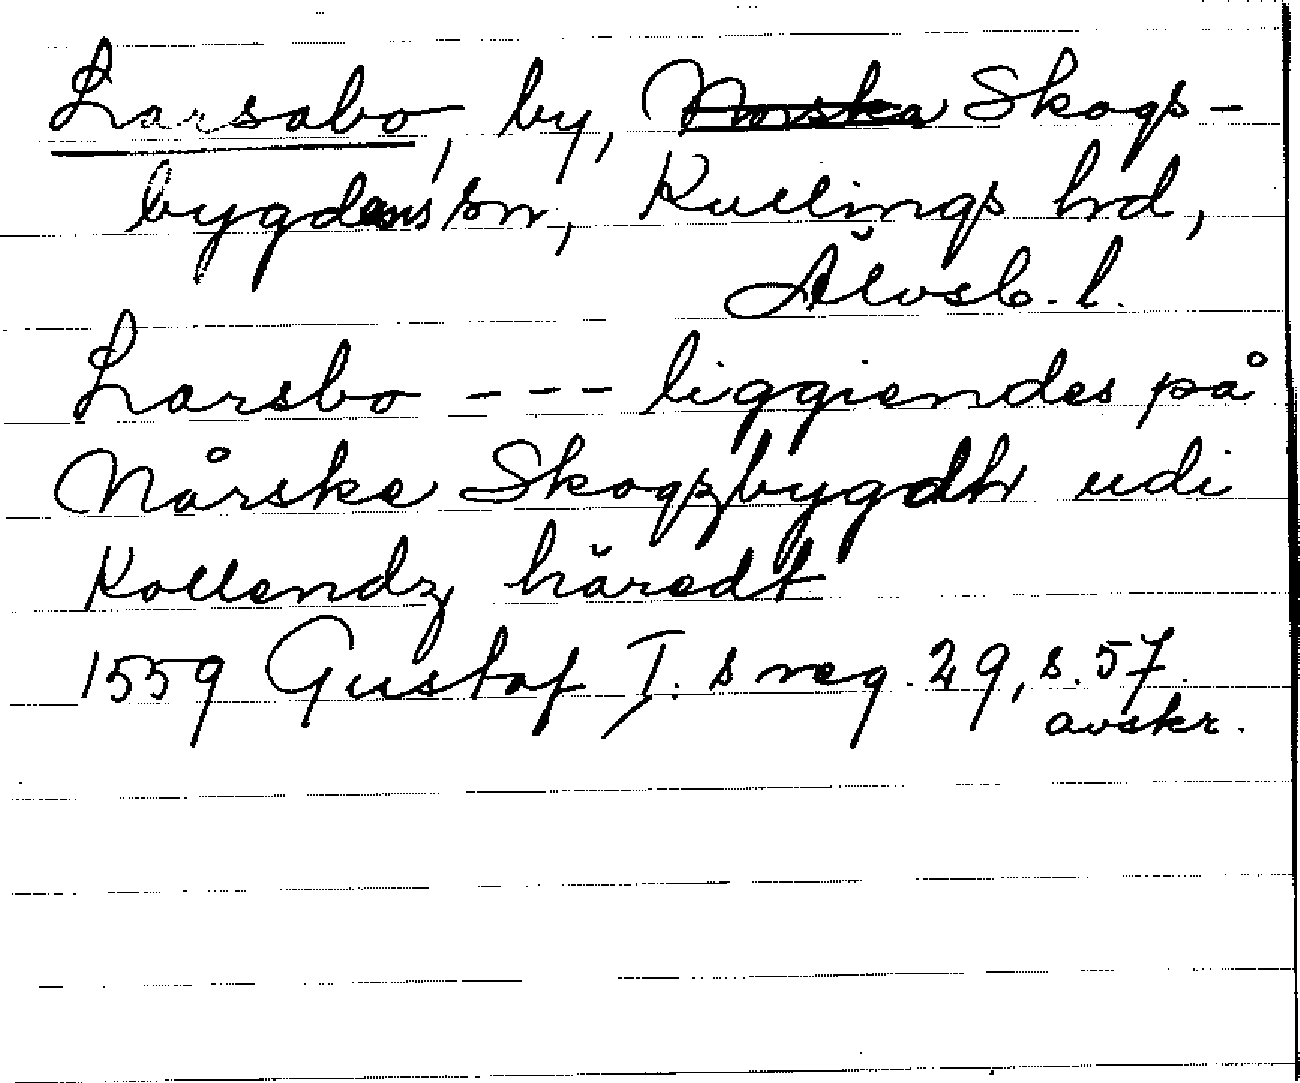 Larsabo, by, Norska Skogs-
bygdens sn, Kullings hrd,
Älvsb. l.
Larsbo --- liggiendes på
Nårske Skogzbygdh udi
Kollendz häredt
1559 Gustaf I:s reg. 29, s. 57.
avskr.